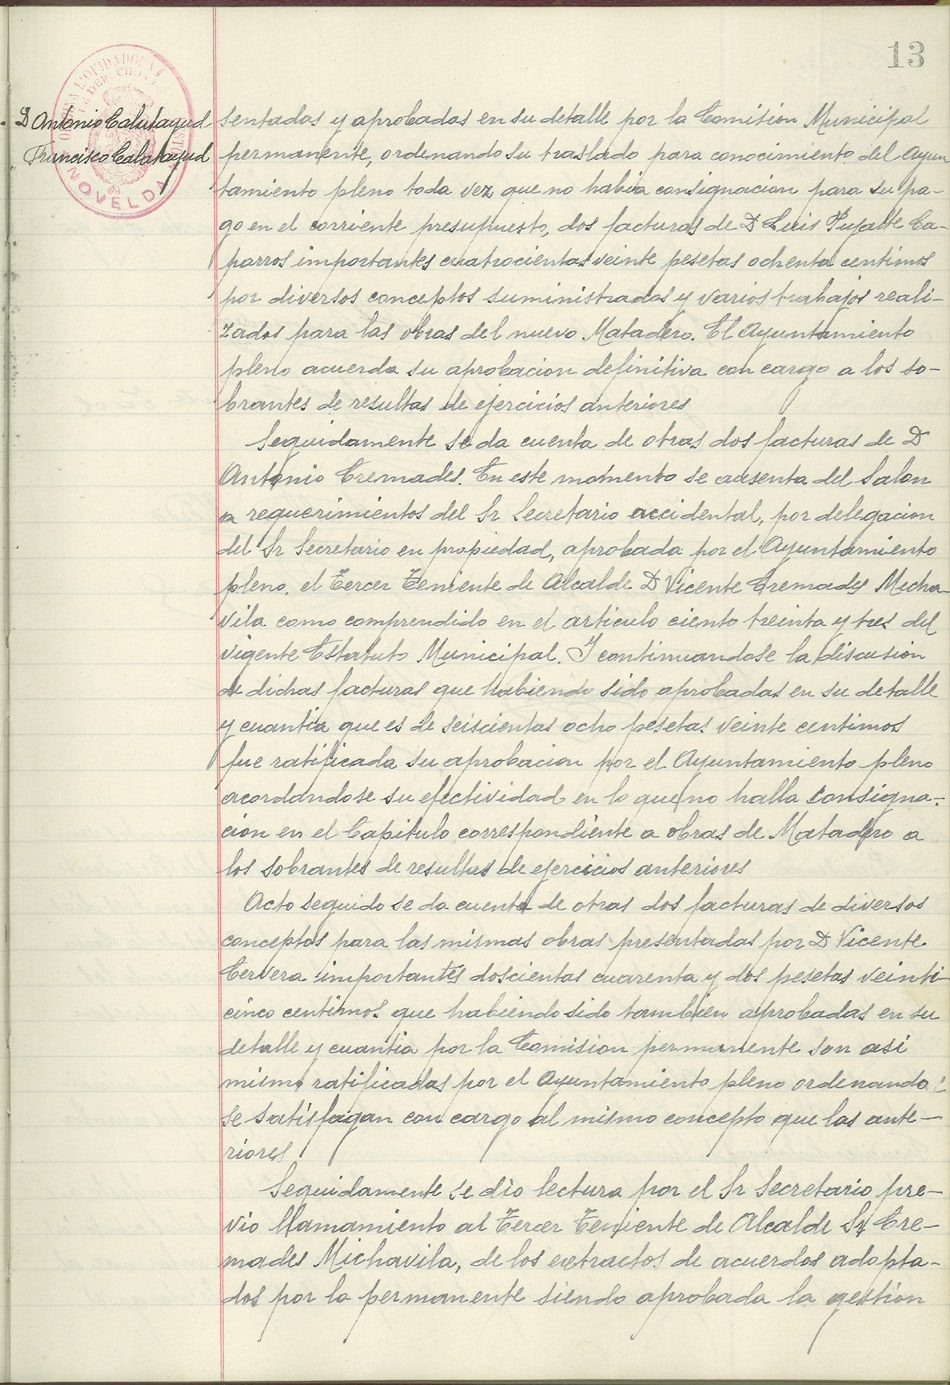 13
D Antonio Calatayud
Francisco Calatayud
NOVELDA
sentadas y aprobadas en su detalle por la Comisión Municipal
permanente, ordenando su traslado para conocimiento del Ayun
tamiento pleno toda vez que no habia consignacion para su pa-
go en el corriente presupuesto, dos facturas de D Luis Pujalte Ca-
parros importantes cuatrocientas veinte pesetas ochenta centimos
por diversos conceptos suministrados y varios trabajos reali-
zados para las obras del nuevo Matadero. El Ayuntamiento
pleno acuerda su aprobacion definitiva con cargo a los so-
brantes de resultas de ejercicios anteriores
Seguidamente se da cuenta de otras dos facturas de D
Antonio Cremades. En este momento se ausenta del Salon
a requerimientos del Sr Secretario accidental, por delegacion
del Sr Secretario en propiedad, aprobada por el Ayuntamiento
pleno. el Tercer Teniente de Alcalde D Vicente Cremades Micha
vila como comprendido en el articulo ciento treinta y tres del
vigente Estatuto Municipal. Y continuandose la discusion
de dichas facturas que habiendo sido aprobadas en su detalle
y cuantia que es de seiscientas ocho pesetas veinte centimos
fue ratificada su aprobacion por el Ayuntamiento pleno
acordandose su efectividad en lo que no halla consigna-
cion en el Capitulo correspondiente a obras de Matadero a
los sobrantes de resultas de ejercicios anteriores
Acto seguido se da cuenta de otras dos facturas de diversos
conceptos para las mismas obras presentadas por D Vicente
Cervera importantes doscientas cuarenta y dos pesetas veinti
cinco centimos que habiendo sido tambien aprobadas en su
detalle y cuantia por la Comision permanente son asi
mismo ratificadas por el Ayuntamiento pleno ordenando
se satisfagan con cargo al mismo concepto que las ante-
riores
Seguidamente se dio lectura por el Sr Secretario pre-
vio llamamiento al Tercer Teniente de Alcalde Sr Cre-
mades Michavila, de los extractos de acuerdos adopta-
dos por la permanente siendo aprobada la gestión